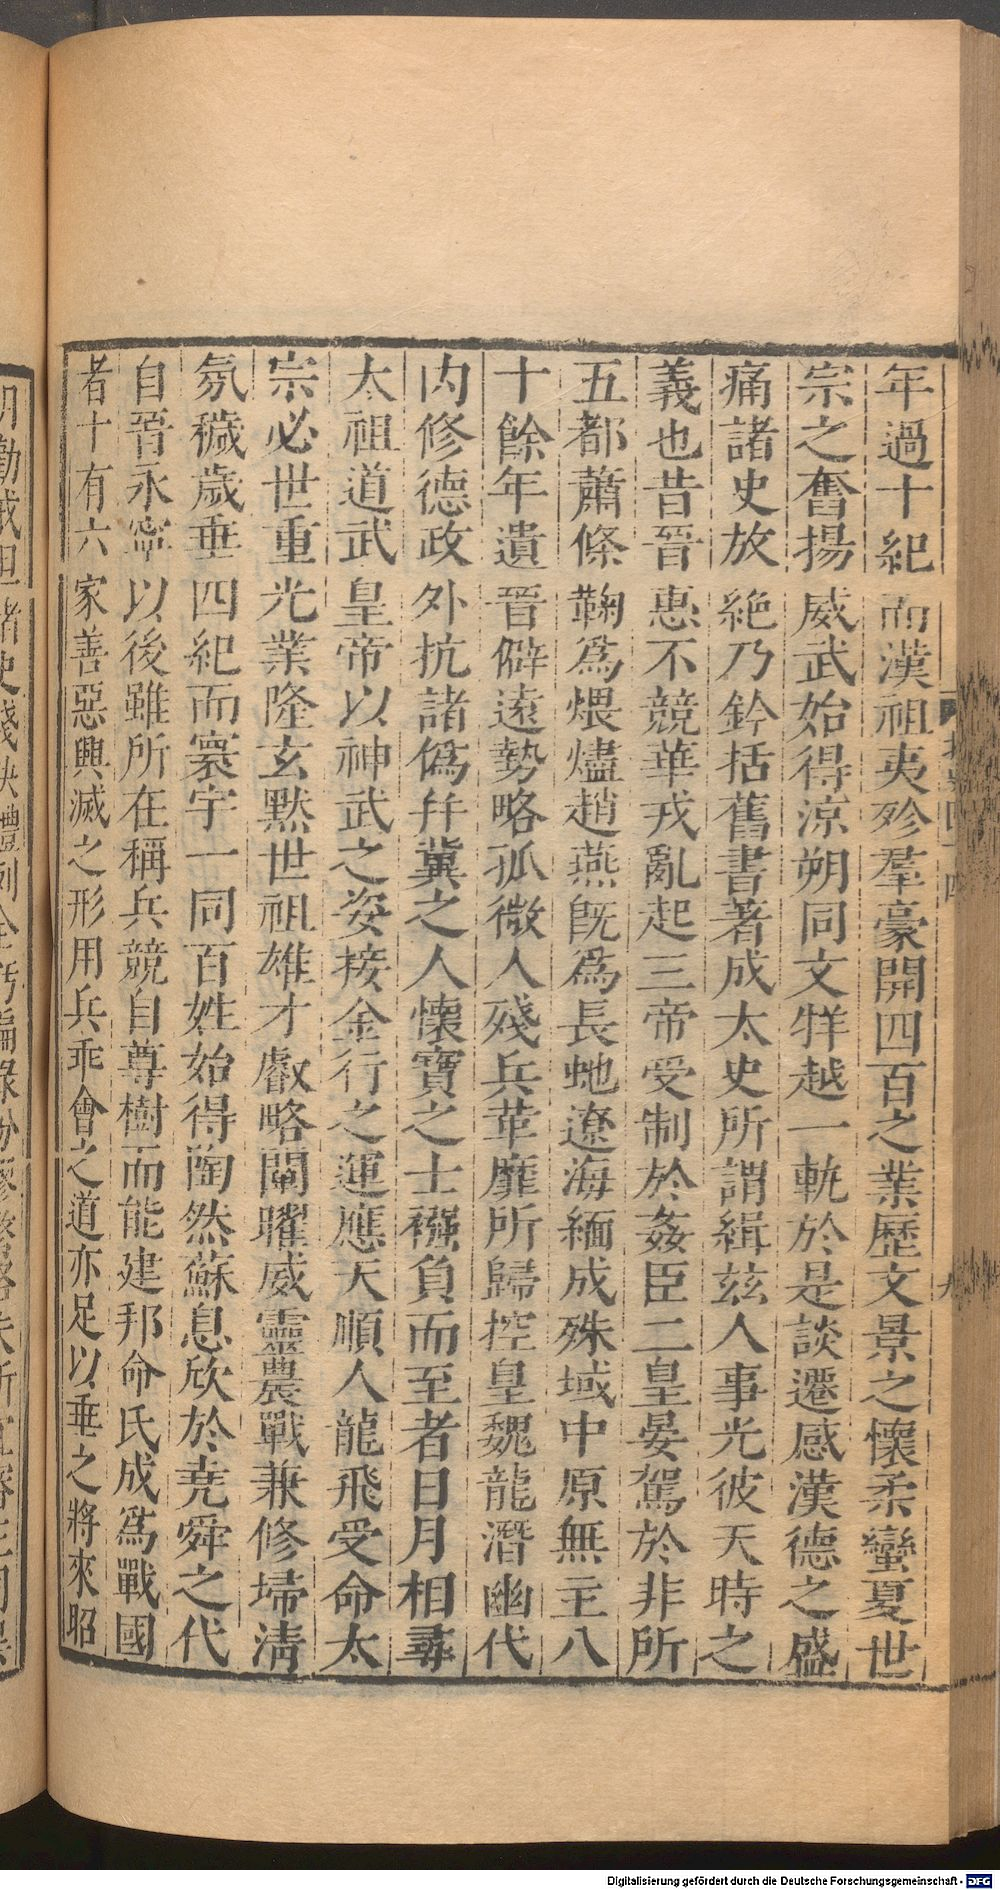 年過十紀而漢祖夷殄羣豪開四百之業歷文景之懷柔蠻夏世
宗之奮揚威武始得涼朔同文牂越一軌於是談遷感漢德之盛
痛諸史放絕乃鈐括舊書著成太史所謂緝茲人事光彼天時之
義也昔晉惠不競華戎亂起三帝受制於姦臣二皇晏駕於非所
五都蕭條鞠爲煨燼趙燕旣爲長虵遼海緬成殊域中原無主八
十餘年遺晉僻遠勢略孤微人殘兵革靡所歸控皇魏龍潛幽代
内修德政外抗諸僞并冀之人懷寶之士襁負而至者日月相尋
太祖道武皇帝以神武之姿接金行之運應天順人龍飛受命太
宗必世重光業隆玄黙世祖雄才叡略闡曜威靈農戰兼修埽淸
氛穢歲垂四紀而寰宇一同百姓始得陶然蘇息欣於堯舜之代
自晉永寧以後雖所在稱兵競自尊樹而能建邦命氏成爲戰國
者十有六家善惡興滅之形用兵乖會之道亦足以垂之將來昭
Digitalisierung gefördert durch die Deutsche Forschungsgemeinschaft - DFG